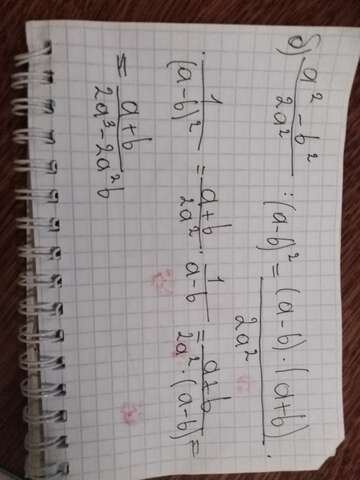 б) \frac{a^2-b^2}{2a^2} : (a-b)^2 = \frac{(a-b)·(a+b)}{2a^2} ·
· \frac{1}{(a-b)^2} = \frac{a+b}{2a^2} · \frac{1}{a-b} = \frac{a+b}{2a^2·(a-b)} =
= \frac{a+b}{2a^3-2a^2b}